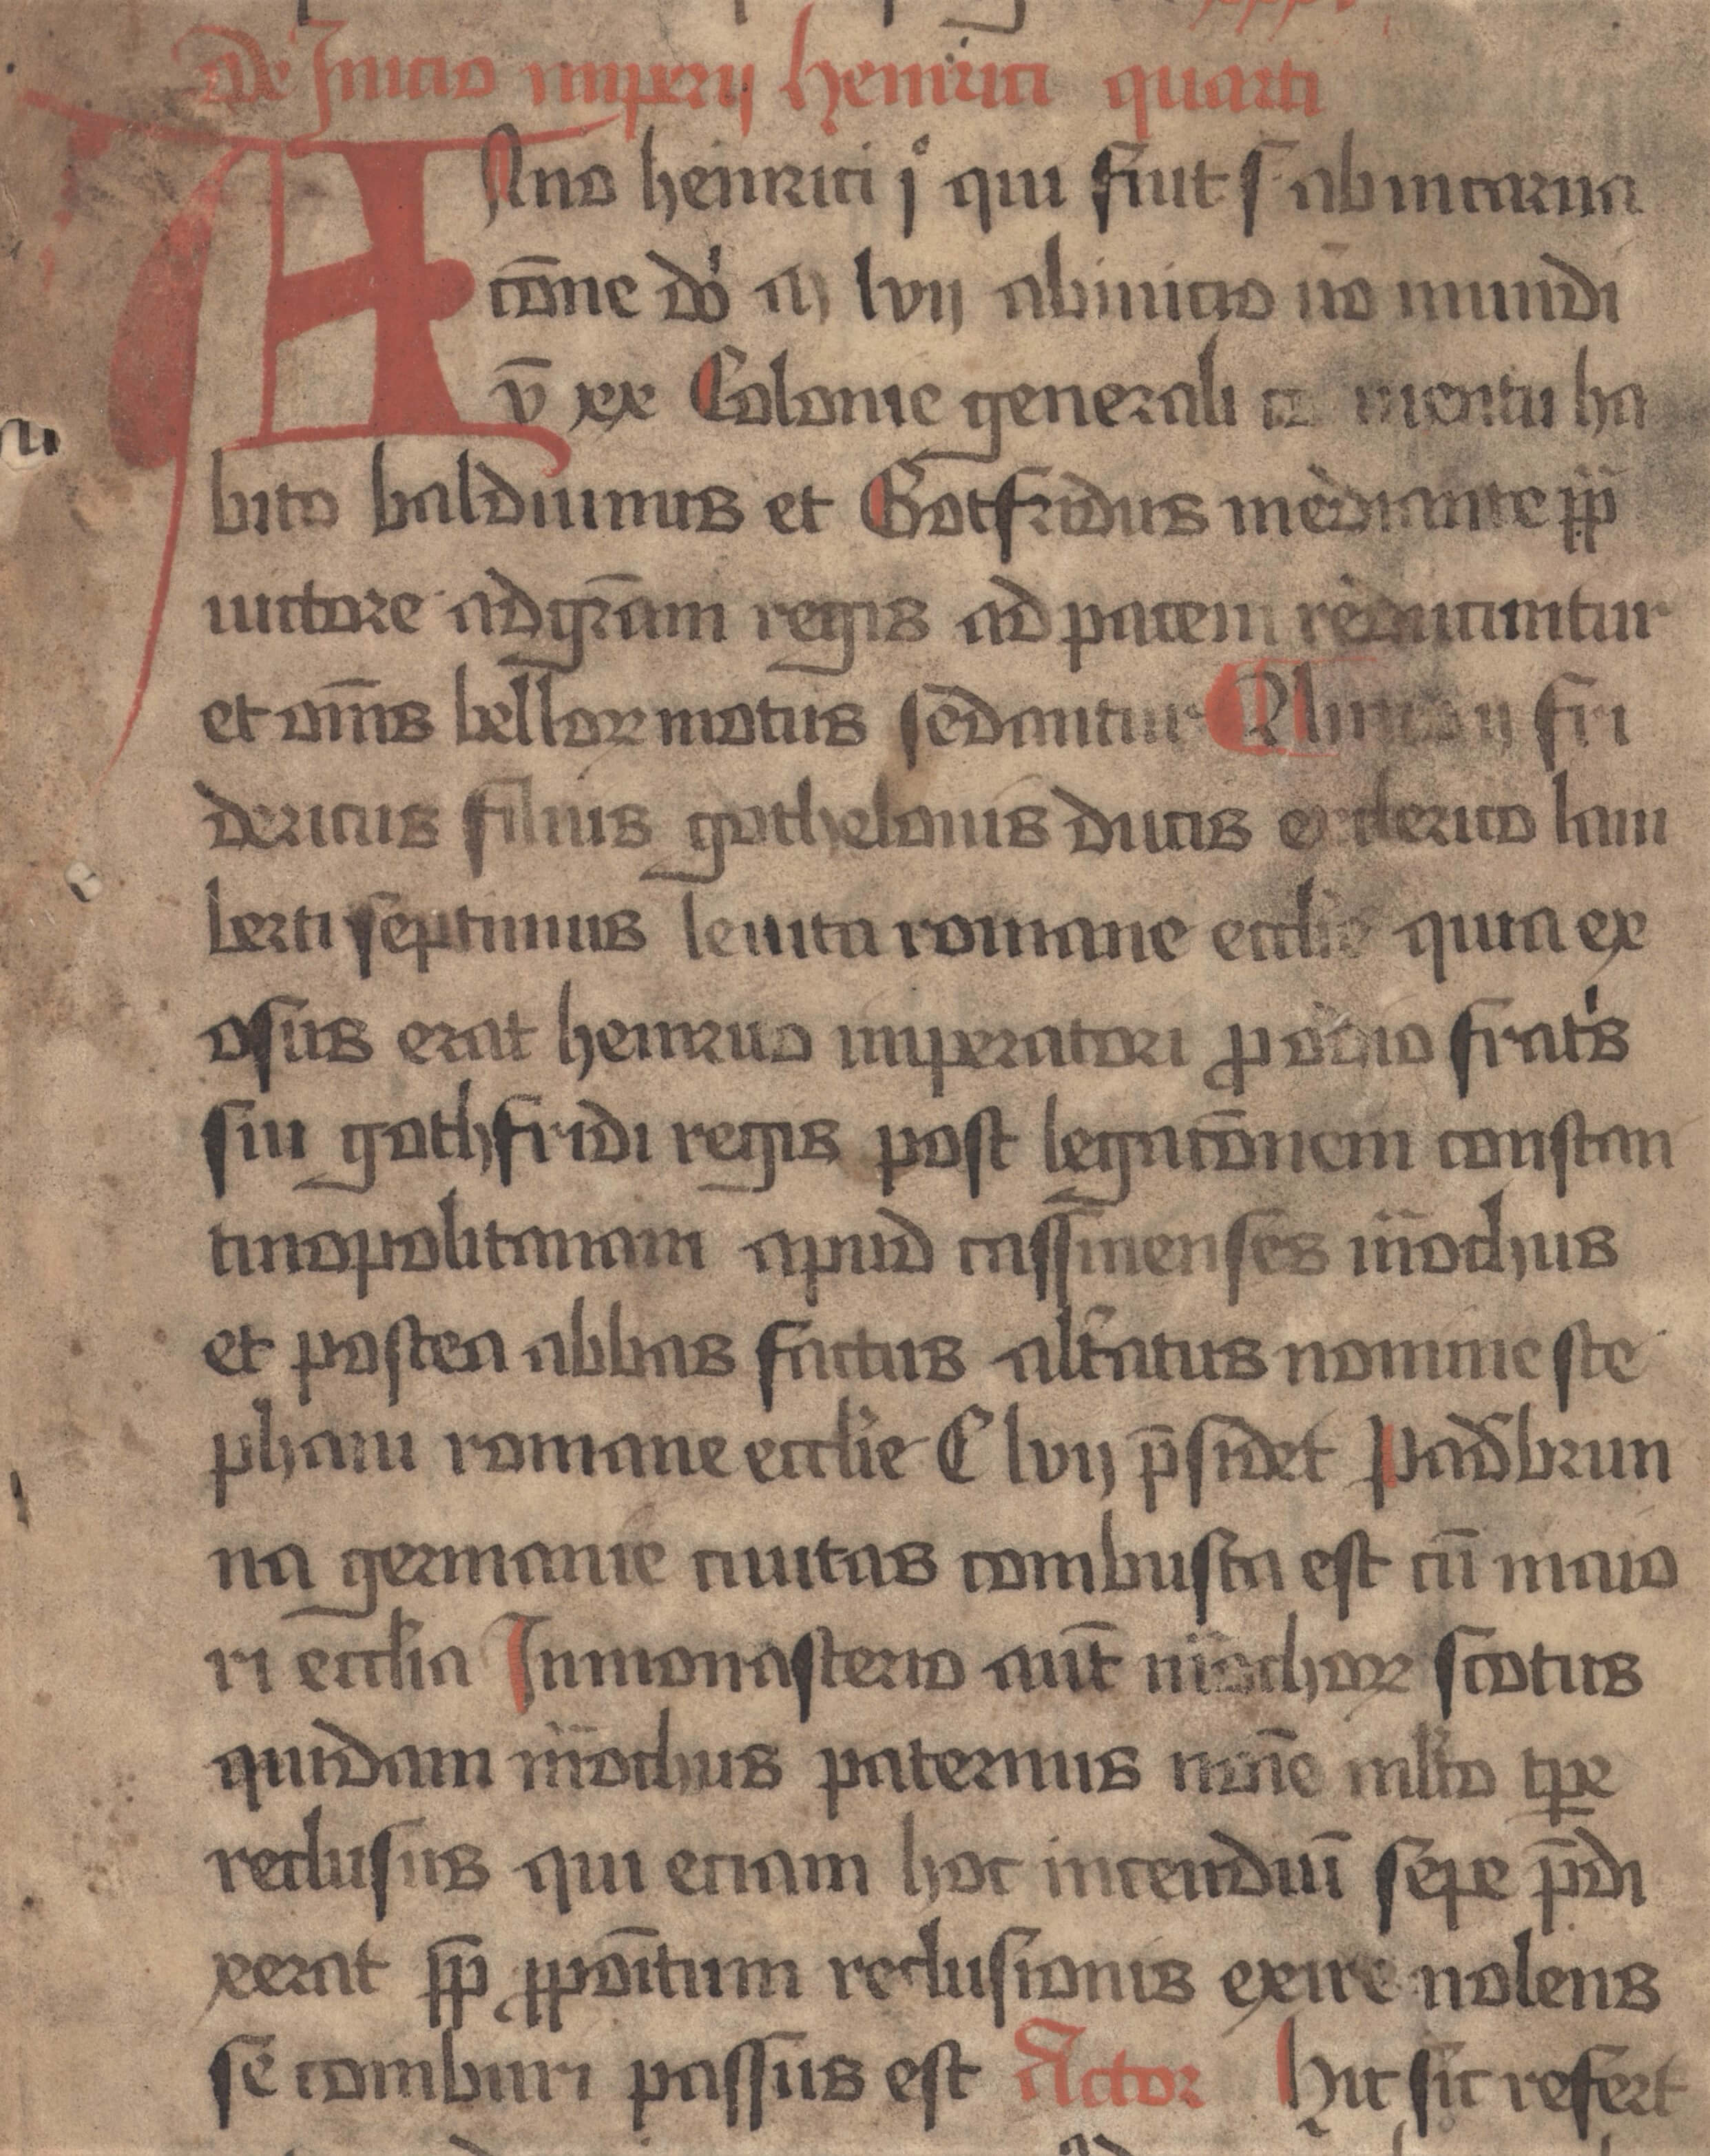 De Inicio imperij heinrici quarti
Anno heinrici jº qui fuit s. ab incarna
cōne dō M lvij ab inicio ṽo mundi
v̄ xx Colonie generali ventu ha
bito balduinus et Gotfridus mediante pp̄
uictore ad gr̄am regis ad pacem reducuntur
et om̄s belloꝝ motus sedantur ij fri
dericus filius gothelonis ducis lau
berti septimus leuita romane eccl̄ie quia ex
osus erat heinrico imperatori ꝓ odio frat's
sui gothfridi regis post legatōnem constan
tinopolitanam apud cassinenses mōchus
et postea abbas factus alt̄atus nomine ste
phani romane eccl̄ie C lvij p̄sidet Pad'brun
na germanie ciuitas combusta est cū maio
ri eccl̄ia In monasterio aūt mōchoꝝ scotus
quidam mōchus paternus noīe ml̄to tꝑe
reclusus qui eciam hoc incendiū sepe p̄di
xerat pp̄ ꝓpoītum reclusionis exire nolens
se comburi passus est Actor Hic sic refert